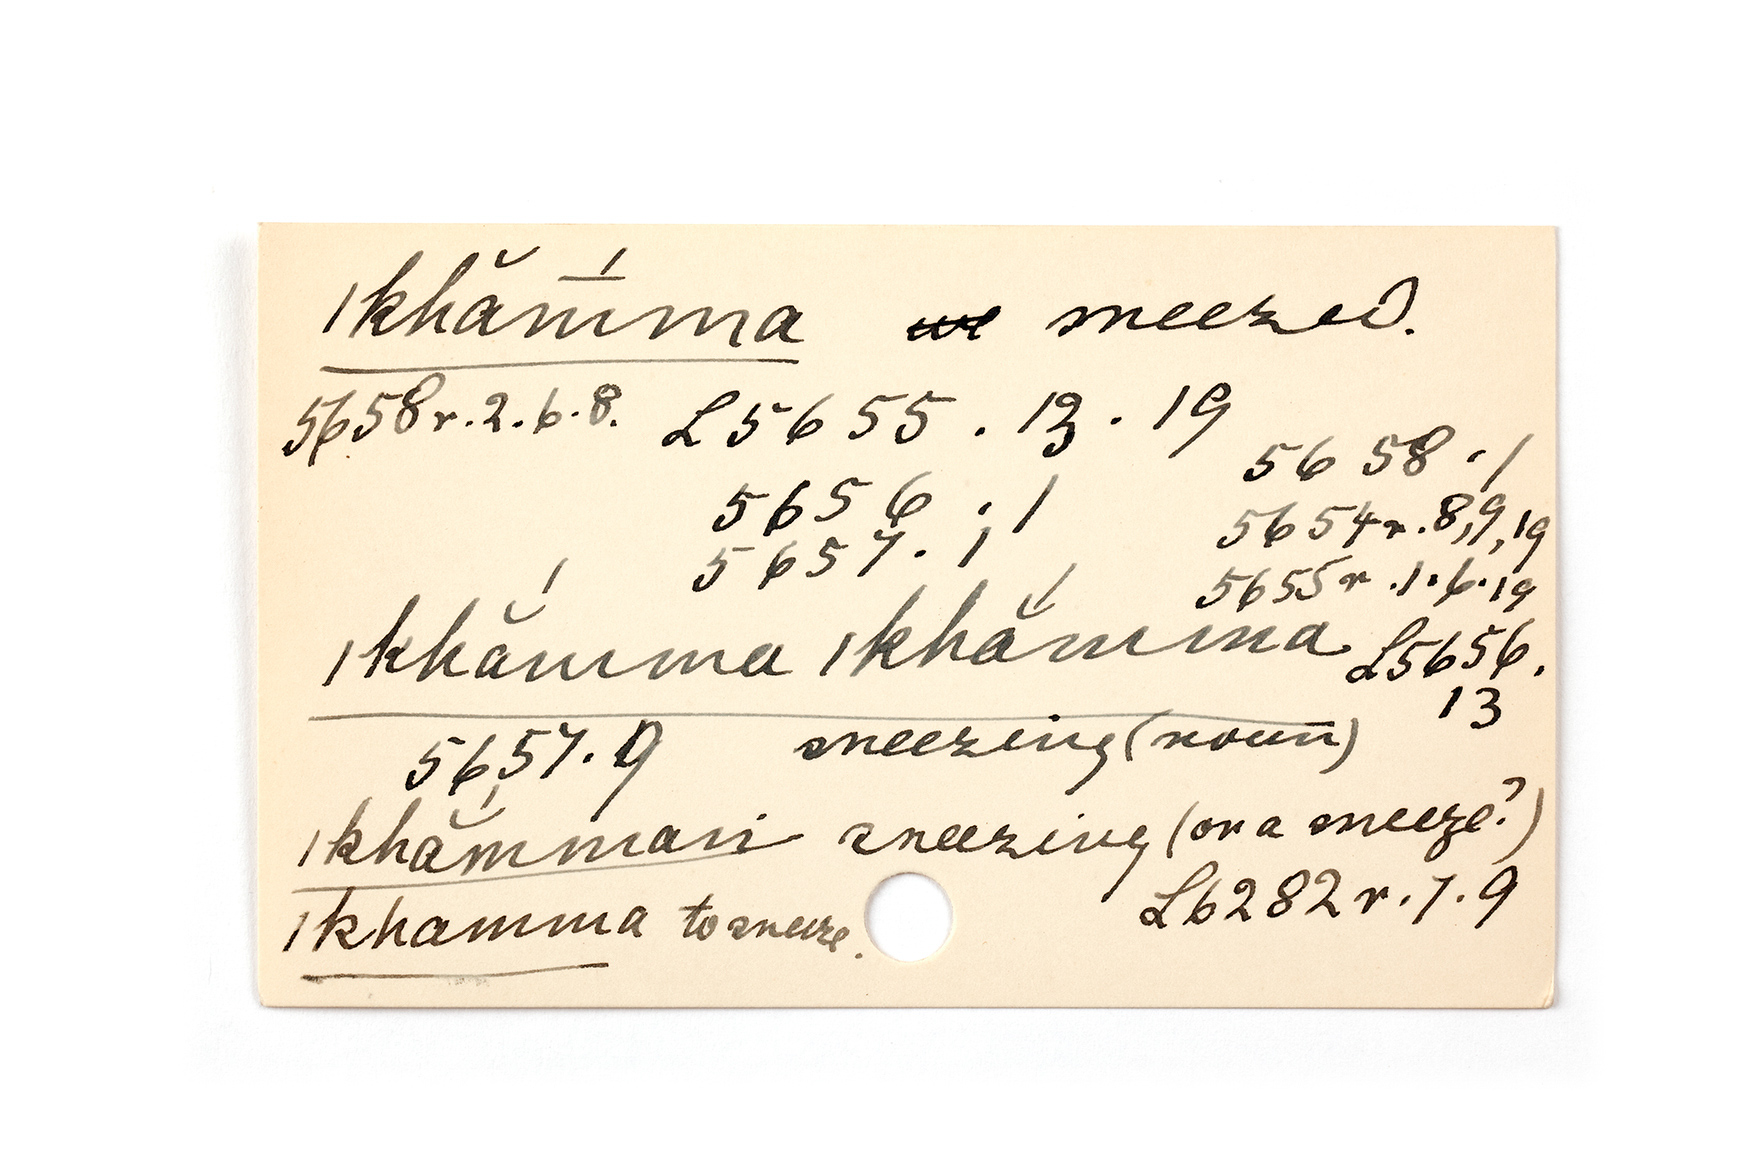 |khămma ~~we~~ sneezed.
5658r.2.6.8. L5655.13.19
5658.1
5656.1
5654r.8,9,19
5657.1
5655r.1.6.19
|khắmma |khắmma L5656.
13
5657.9 sneezing (noun)
|khắmman sneezing (or a sneeze?)
L6282r.7.9
|khamma to sneeze.